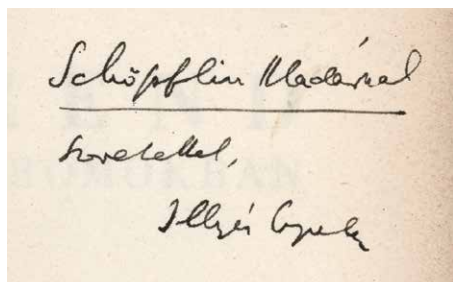 Schöpflin Aladárnak
szeretettel,
Illyés Gyula